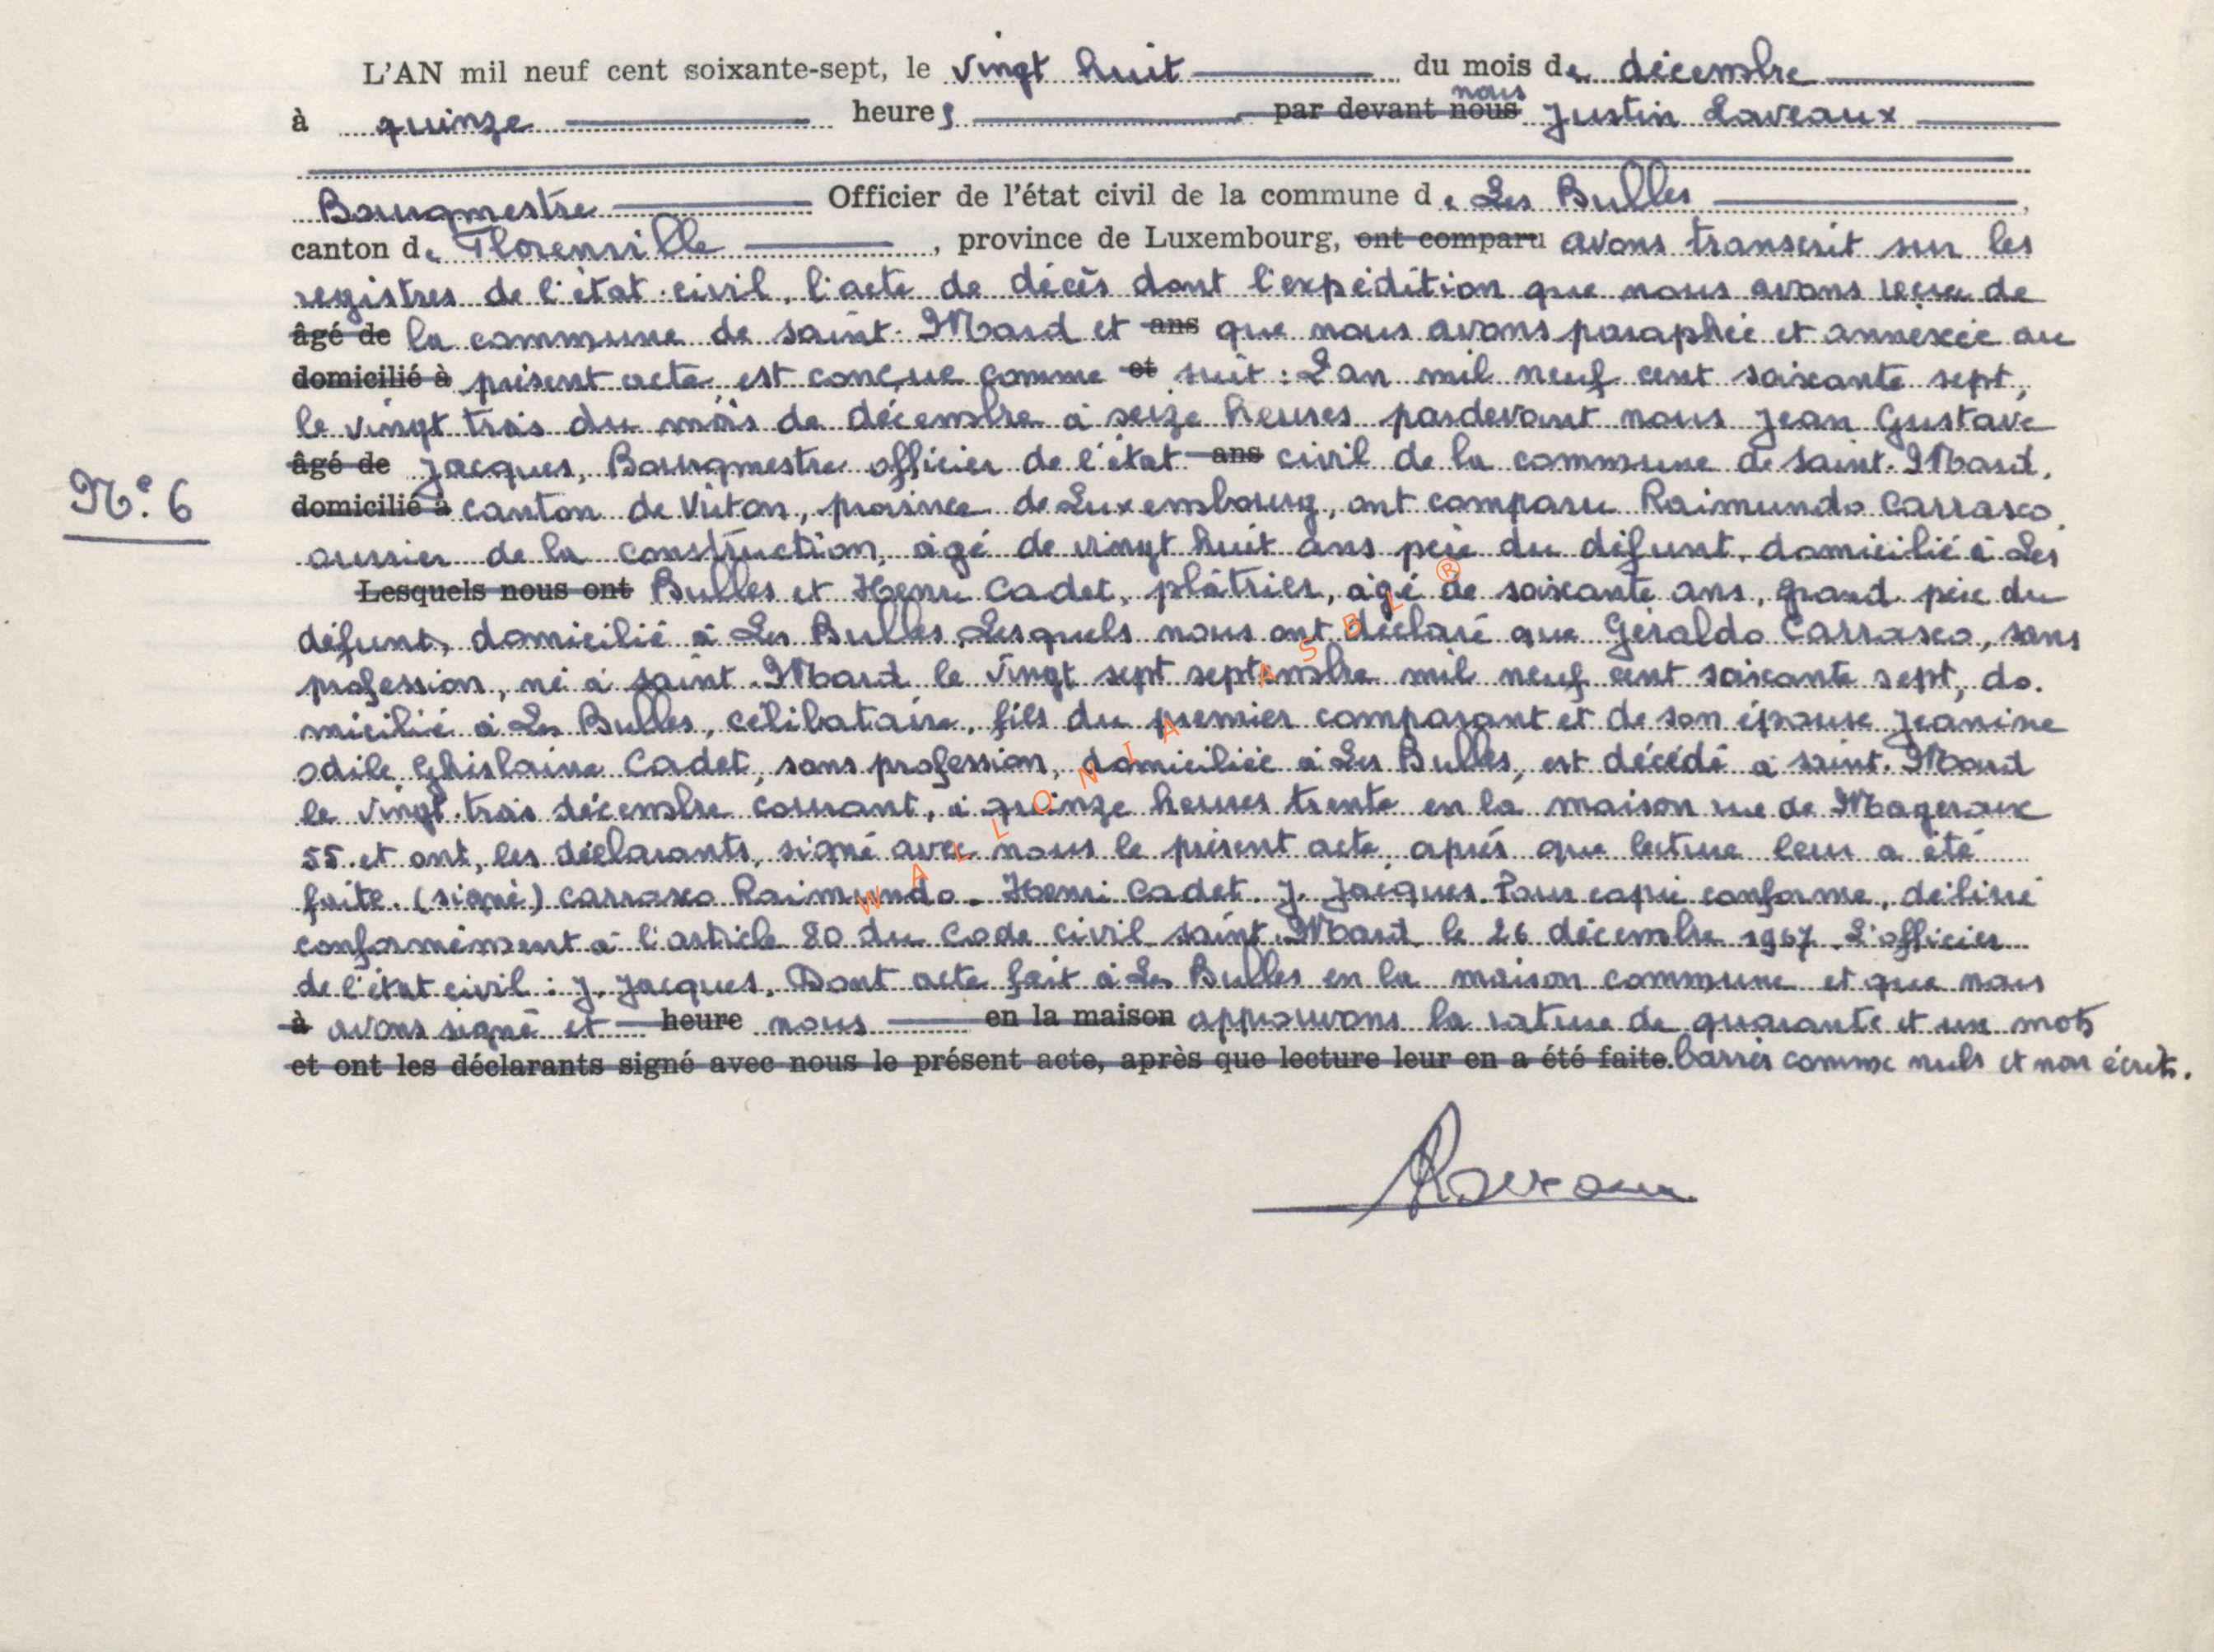 L'AN mil neuf cent soixante-sept, le vingt huit du mois de décembre
à quinze heures par devant nous nous Justin Laveaux
Bourgmestre Officier de l'état civil de la commune de Les Bulles,
canton de Florenville, province de Luxembourg, ont comparu avons transcrit sur les
registres de l'état civil, l'acte de décès dont l'expédition que nous avons reçue de
âgé de la commune de Saint-Mard et ans que nous avons paraphée et annexée au
domicilié à présent acte, est conçue comme et suit : L'an mil neuf cent soixante sept,
le vingt trois du mois de décembre à seize heures pardevant nous Jean Gustave
âgé de Jacques, Bourgmestre officier de l'état ans civil de la commune de Saint-Mard,
N° 6
domicilié à canton de Virton, province de Luxembourg, ont comparu Raimundo Carrasco,
ouvrier de la construction, âgé de vingt huit ans père du défunt, domicilié à Les
Lesquels nous ont Bulles et Henri Cadet, plâtrier, âgé de soixante ans, grand père du
défunt, domicilié à Les Bulles. Lesquels nous ont déclaré que Géraldo Carrasco, sans
profession, né à Saint-Mard le vingt sept septembre mil neuf cent soixante sept, do-
micilié à Les Bulles, célibataire, fils du premier comparant et de son épouse Jeanine
Odile Ghislaine Cadet, sans profession, domiciliée à Les Bulles, est décédé à Saint-Mard
le vingt-trois décembre courant, à quinze heures trente en la maison rue de Mageroux
55. et ont, les déclarants, signé avec nous le présent acte, après que lecture leur a été
faite. (signé) Carrasco Raimundo. Henri Cadet. J. Jacques. Pour copie conforme, délivré
conformément à l'article 80 du Code civil Saint-Mard, le 26 décembre 1967. L'officier
de l'état civil : J. Jacques. Dont acte fait à Les Bulles en la maison commune et que nous
à avons signé et heure nous en la maison approuvons la rature de quarante et un mots
et ont les déclarants signé avec nous le présent acte, après que lecture leur en a été faite. barrés comme nuls et non écrits.
WALLONIA ASBL ®